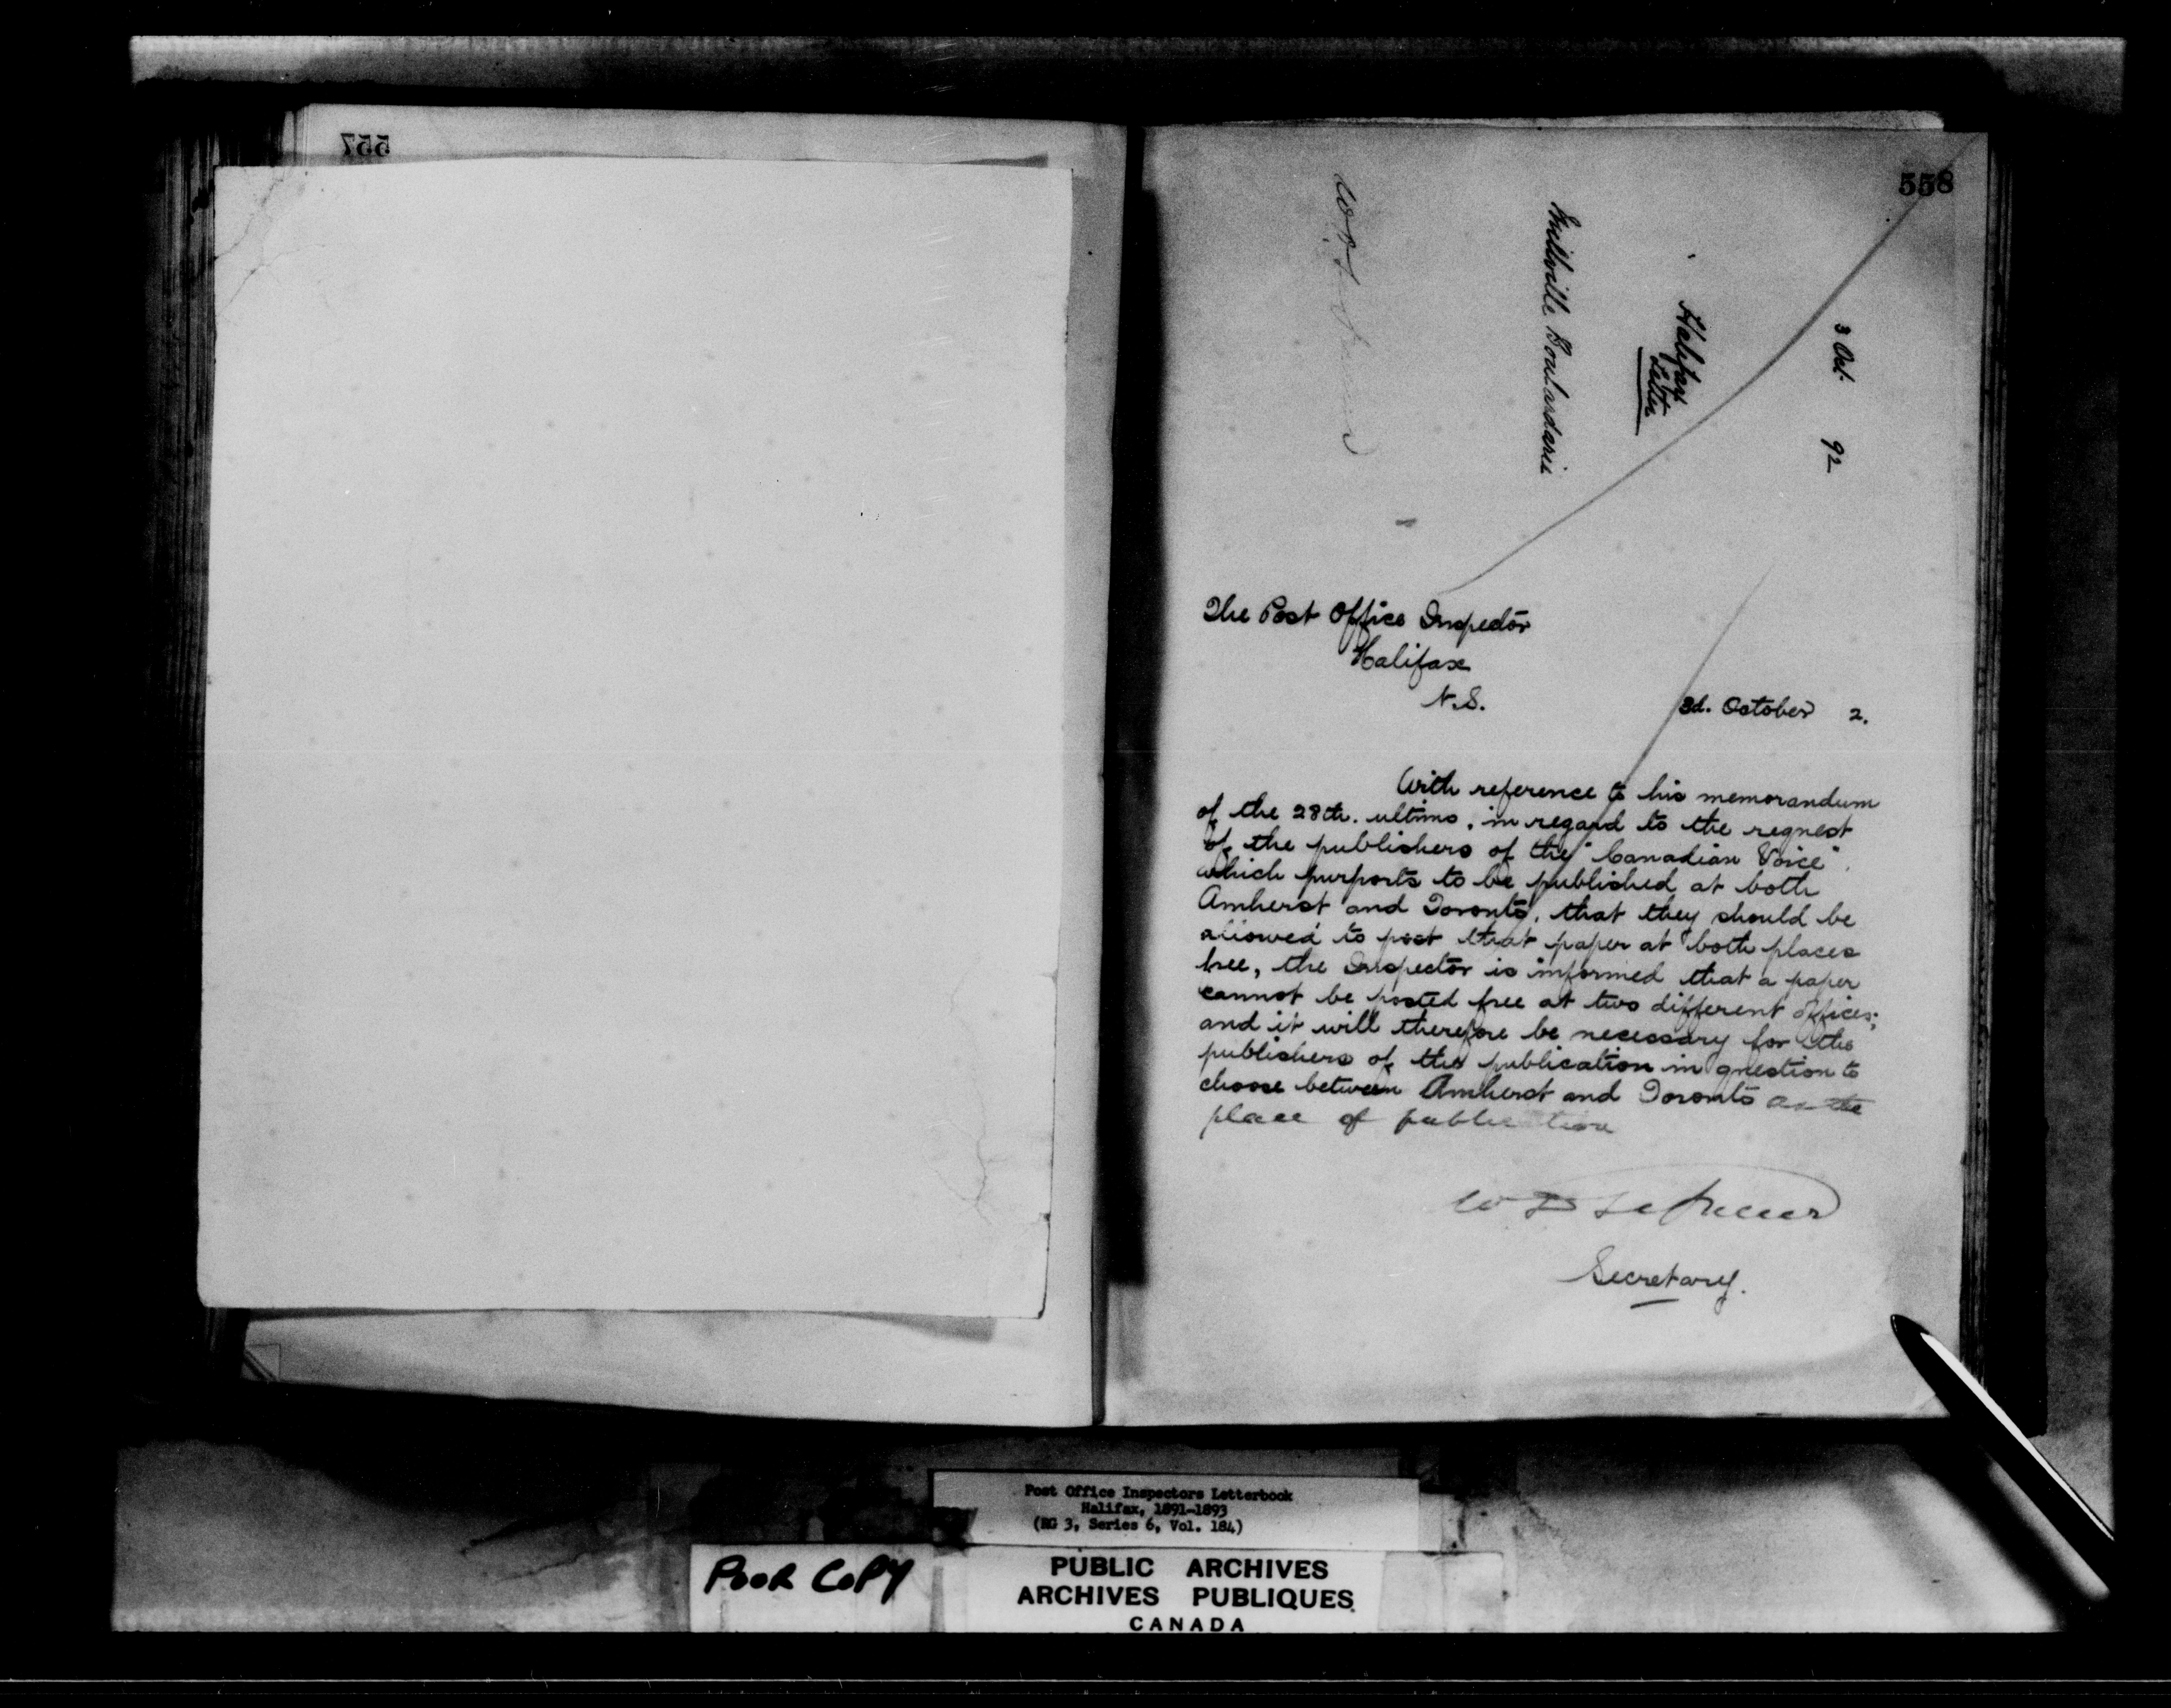 557
558
3 Oct. 92
Halifax
Letter
Millville Boulardarie
The Post Office Inspector
Halifax
N.S.
3d. October 2.
With reference to his memorandum
of the 28th. ultimo, in regard to the request
of the publishers of the "Canadian Voice",
which purports to be published at both
Amherst and Toronto, that they should be
allowed to post that paper at both places
free, the Inspector is informed that a paper
cannot be posted free at two different offices;
and it will therefore be necessary for the
publishers of the publication in question to
choose between Amherst and Toronto as the
place of publication
Secretary.
Post Office Inspectors Letterbook
Halifax, 1891-1893
(RG 3, Series 6, Vol. 184)
POOR COPY
PUBLIC ARCHIVES
ARCHIVES PUBLIQUES
CANADA